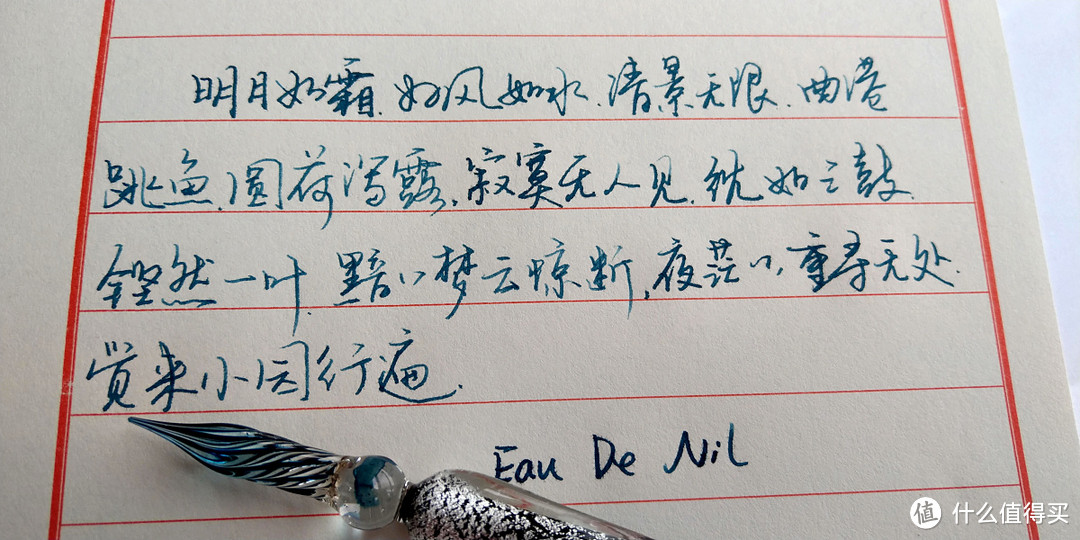 明月如霜.好风如水.清景无限.曲港
跳鱼.圆荷泻露.寂寞无人见.紞如三鼓.
铿然一叶.黯〃梦云惊断,夜茫〃,重寻无处.
觉来小园行遍.
Eau De Nil
值 什么值得买